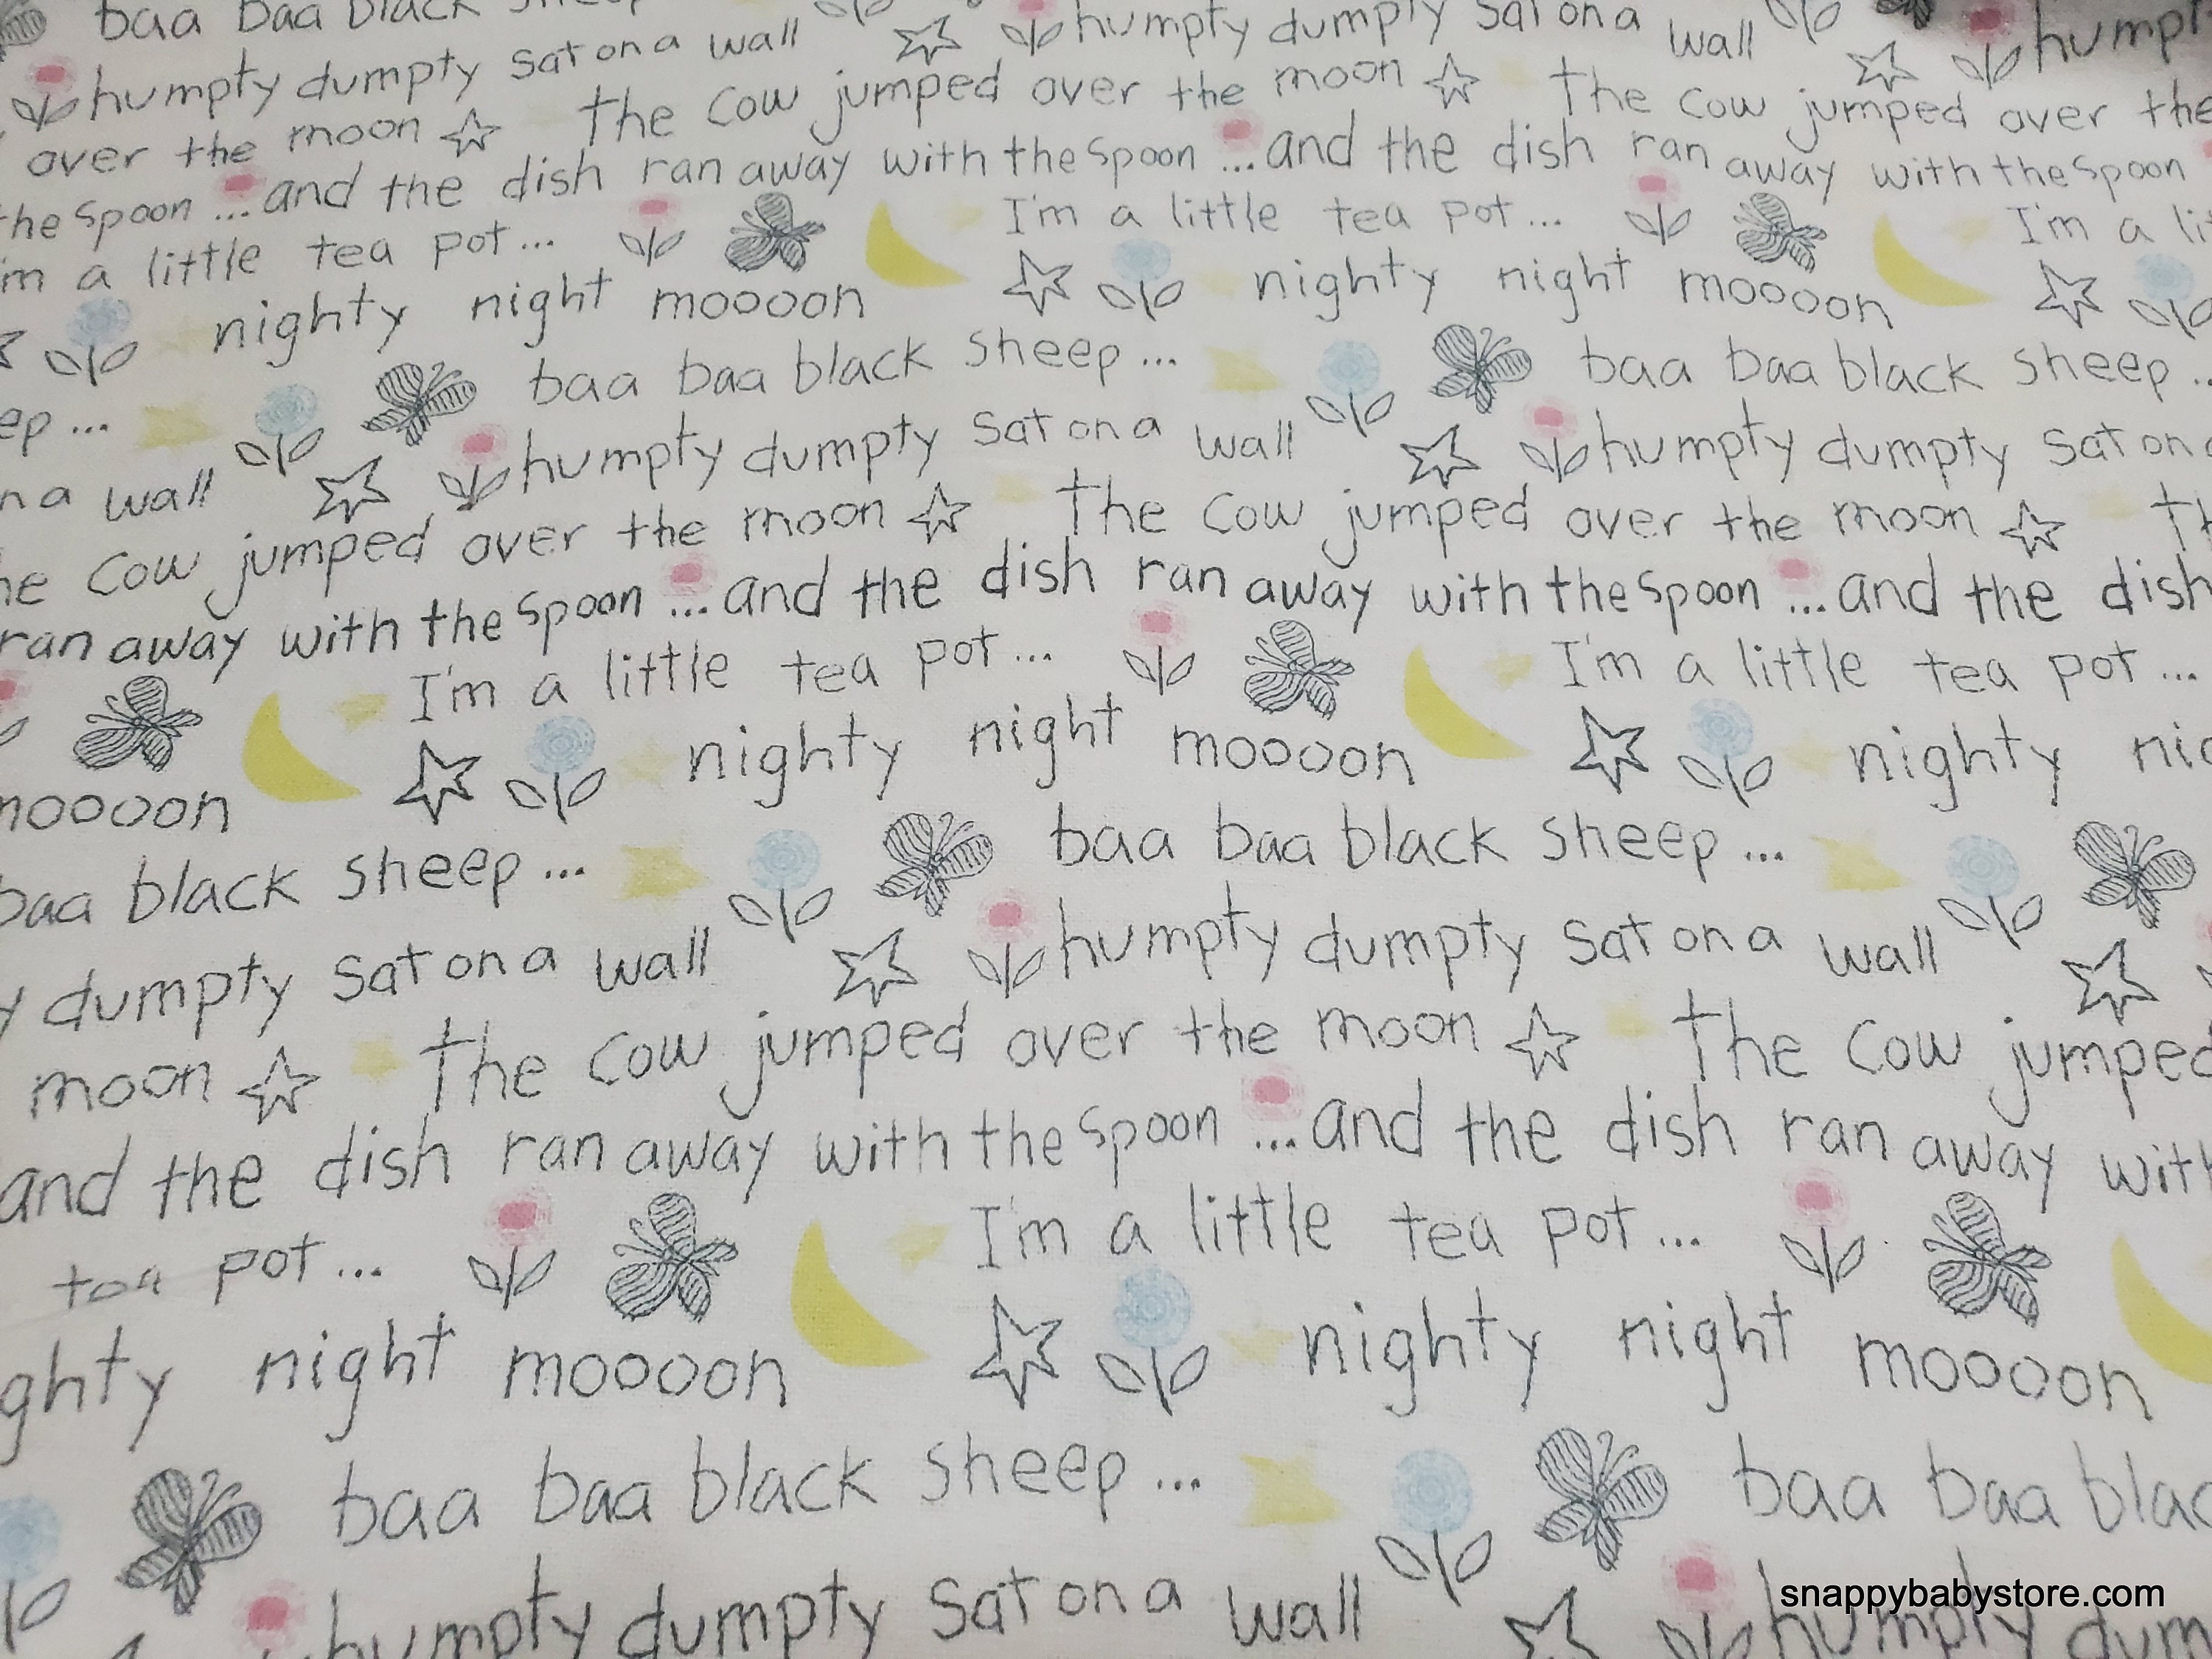 baa baa black sheep
humpty dumpty sat on a wall humpty dumpty sat on a wall
over the moon the cow jumped over the moon the cow jumped over the
the spoon ...and the dish ran away with the spoon ...and the dish ran away with the spoon
I'm a little tea pot... I'm a little tea pot... I'm a
nighty night moooon nighty night moooon
... baa baa black sheep... baa baa black sheep...
on a wall humpty dumpty sat on a wall humpty dumpty sat on a
the cow jumped over the moon the cow jumped over the moon
ran away with the spoon ...and the dish ran away with the spoon ...and the dish
I'm a little tea pot... I'm a little tea pot...
moooon nighty night moooon nighty
baa black sheep... baa baa black sheep...
dumpty sat on a wall humpty dumpty sat on a wall
moon the cow jumped over the moon the cow jumped
and the dish ran away with the spoon ...and the dish ran away with
tea pot... I'm a little tea pot...
ghty night moooon nighty night moooon
baa baa black sheep... baa baa blac
humpty dumpty sat on a wall humpty dum
snappybabystore.com